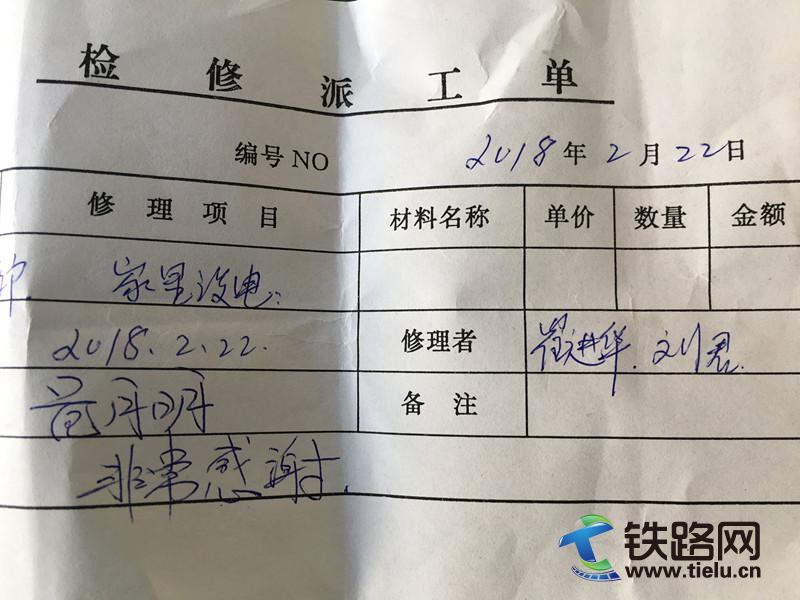 检修派工单
编号 NO 2018年2月22日
修理项目 材料名称 单价 数量 金额
家里没电.
2018.2.22. 修理者 崔进华.刘君.
备注
非常感谢.
铁路网
www.tielu.cn